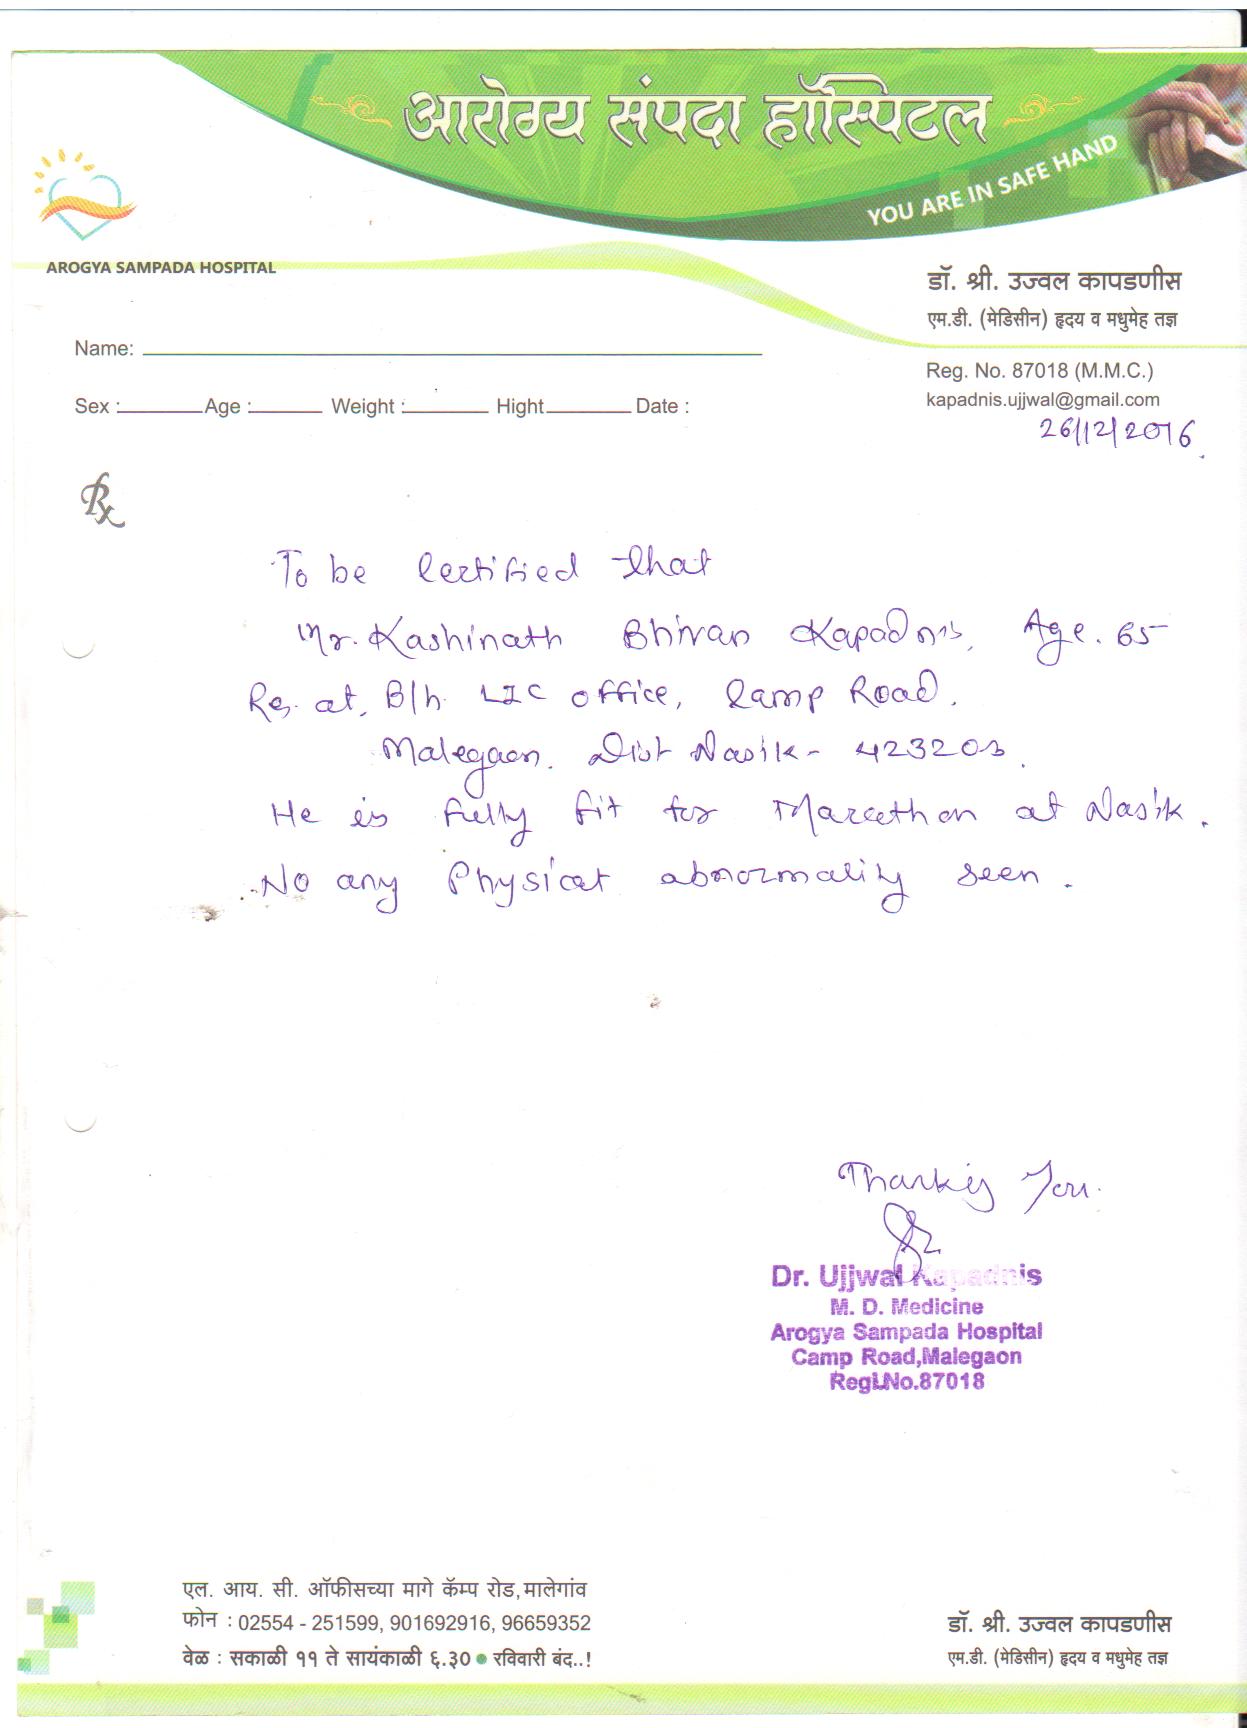 आरोग्य संपदा हॉस्पिटल
YOU ARE IN SAFE HAND
AROGYA SAMPADA HOSPITAL
डॉ. श्री. उज्वल कापडणीस
एम.डी. (मेडिसीन) हृदय व मधुमेह तज्ञ
Name:
Reg. No. 87018 (M.M.C.)
kapadnis.ujjwal@gmail.com
Sex : Age : Weight : Hight Date :
26/12/2016
Rx
To be Certified that
Mr. Kashinath Bhivan Kapadnis, Age. 65
Res. at. B/h. LIC office, Camp Road.
Malegaon. Dist Nasik - 423203.
He is fully fit for Marathon at Nasik.
No any Physical abnormality seen.
Thanking You.
Dr. Ujjwal Kapadnis
M. D. Medicine
Arogya Sampada Hospital
Camp Road,Malegaon
Reg.No.87018
एल. आय. सी. ऑफीसच्या मागे कॅम्प रोड, मालेगांव
फोन : 02554 - 251599, 901692916, 96659352
वेळ : सकाळी ११ ते सायंकाळी ६.३० ● रविवारी बंद..!
डॉ. श्री. उज्वल कापडणीस
एम.डी. (मेडिसीन) हृदय व मधुमेह तज्ञ